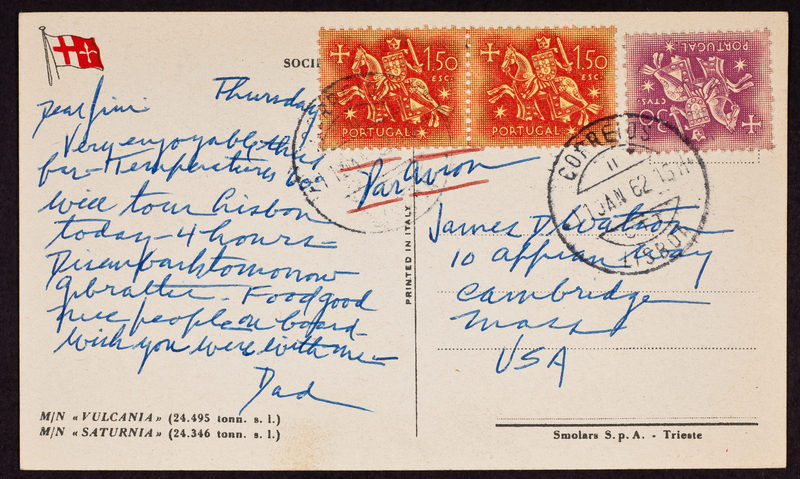 SOCIE
150
ESC.
PORTUGAL
150
ESC.
PORTUGAL
PORTUGAL
CTVS.
Thursday
Dear Jim:
Very enjoyable thus
far - Temperatures 60
will tour Lisbon
today - 4 hours -
Disembark tomorrow
Gibraltar - Food good
nice people on board -
Wish you were with me -
Dad
M/N «VULCANIA» (24.495 tonn. s. l.)
M/N «SATURNIA» (24.346 tonn. s. l.)
PRINTED IN ITALY
Par Avion
CORREIOS
11 JAN 62
LISBOA
James D. Watson
10 Appian Way
Cambridge
Mass
USA
Smolars S.p.A. - Trieste